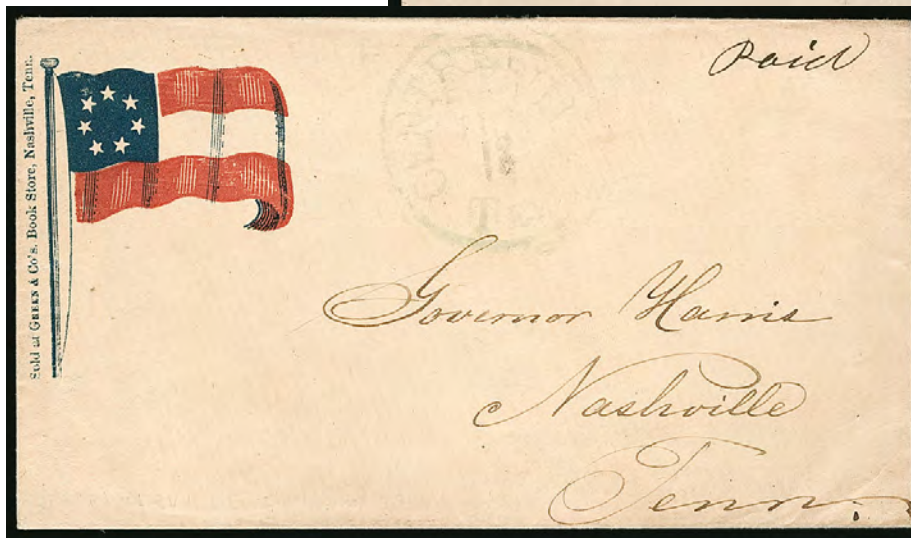 Sold at GREEN & Co's. Book Store, Nashville, Tenn.
Paid
18
Governor Harris
Nashville
Tenn.